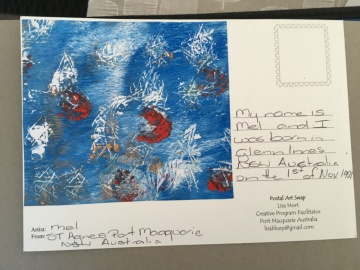 My name is
Mel and I
was born in
Glenn Innes
New Australia
on the 1st of Nov
Postal Art Swap
Lisa Hort
Creative Program Facilitator
Port Macquarie Australia
Artist: mel
From: ST Agnes Port Macquarie
New Australia